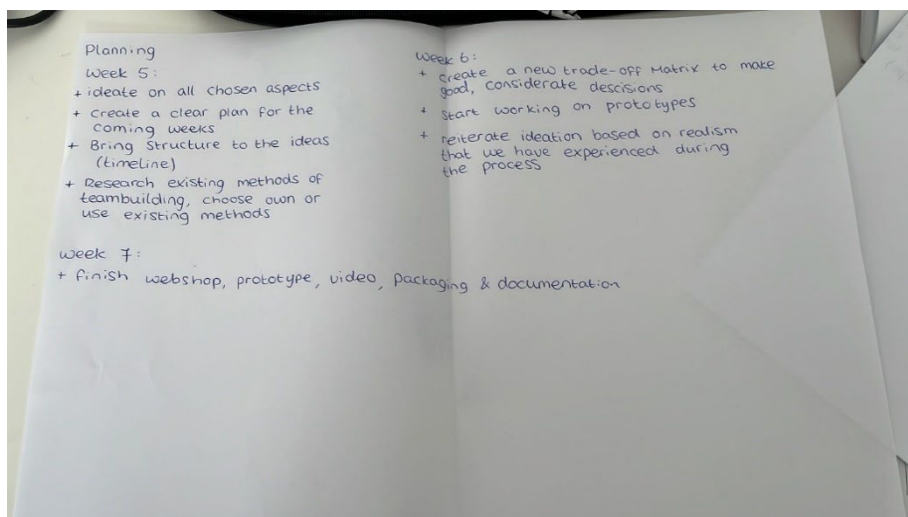 Planning
Week 5:
+ ideate on all chosen aspects
+ Create a clear plan for the
coming weeks
+ Bring Structure to the ideas
(timeline)
+ Research existing methods of
teambuilding, choose own or
use existing methods
Week 6:
+ create a new trade-off Matrix to make
good, considerate descisions
+ Start working on prototypes
+ reiterate ideation based on realism
that we have experienced during
the process
Week 7:
+ finish webshop, prototype, video, packaging & documentation